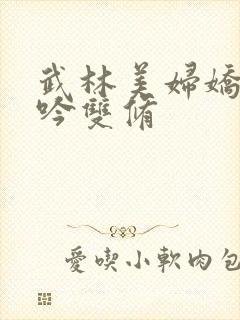 武林美婦嬌
吟雙脩
愛喫小軟肉包